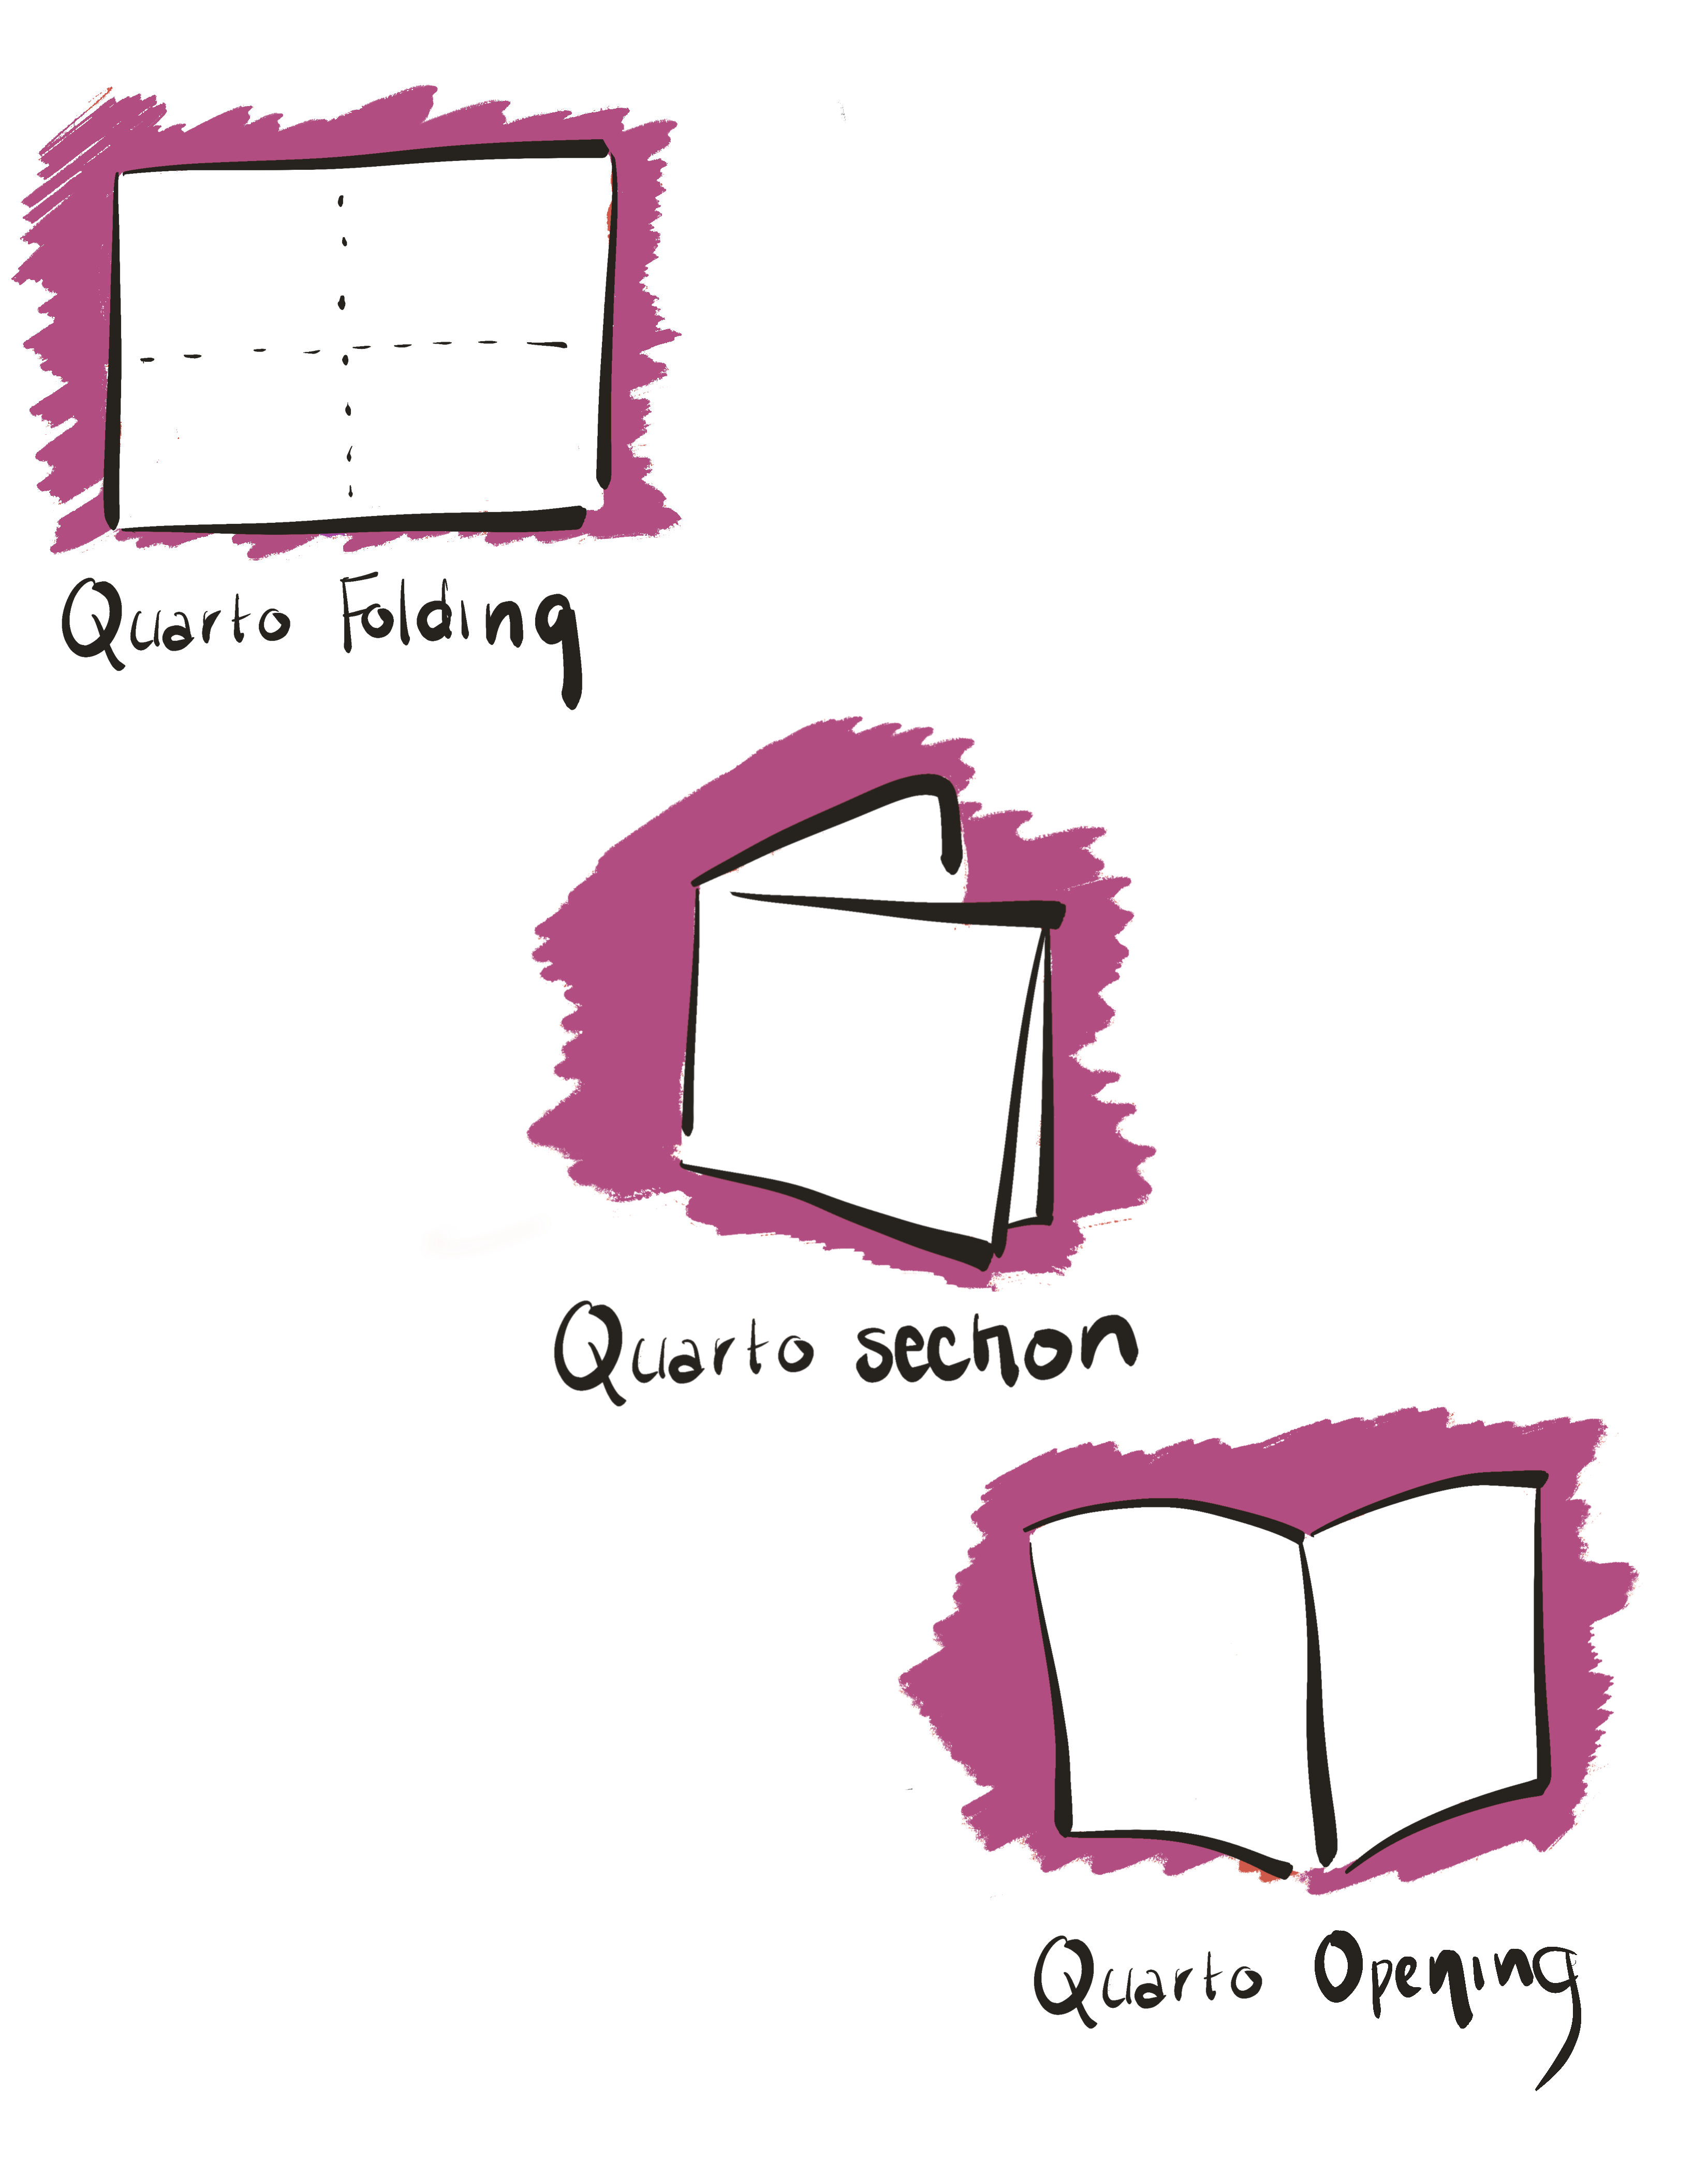 Quarto Folding
Quarto section
Quarto Opening